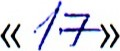 «17»